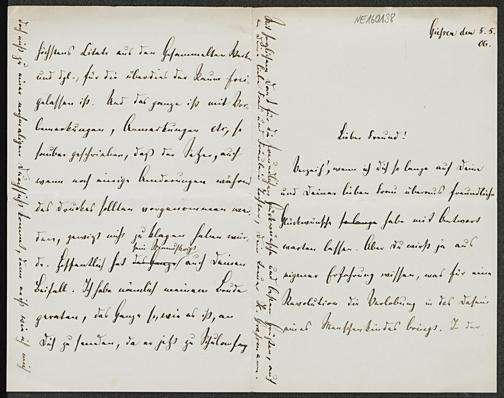 NE160138
Güsen den 5.5.
06.
Lieber Freund!
Verzeih', wenn ich dich so lange auf Deine
und Deiner lieben Frau überaus freundlichen
Glückwünsche habe mit Antwort
warten lassen. Aber Du wirst ja aus
eigener Erfahrung wissen, was für eine
Revolution die Verlobung in das Dasein
eines Menschenkindes bringt. In der
höchstens Citate aus den Gesammelten Werken
und dgl., für die überdies der Raum frei
gelassen ist. Und das ganze ist mit Vor-
bemerkungen, Anmerkungen etc. so
sauber geschrieben, daß der Setzer, auch
wenn noch einige Änderungen während
des Druckes sollten vorgenommen wer-
den, gewiß nicht zu klagen haben wür-
de. Hoffentlich hat auch Deinen
Beifall. Ich habe nämlich meinem Bruder
geraten, das Ganze so, wie es ist, an
Dich zu senden, da er jetzt zu Schulanfang